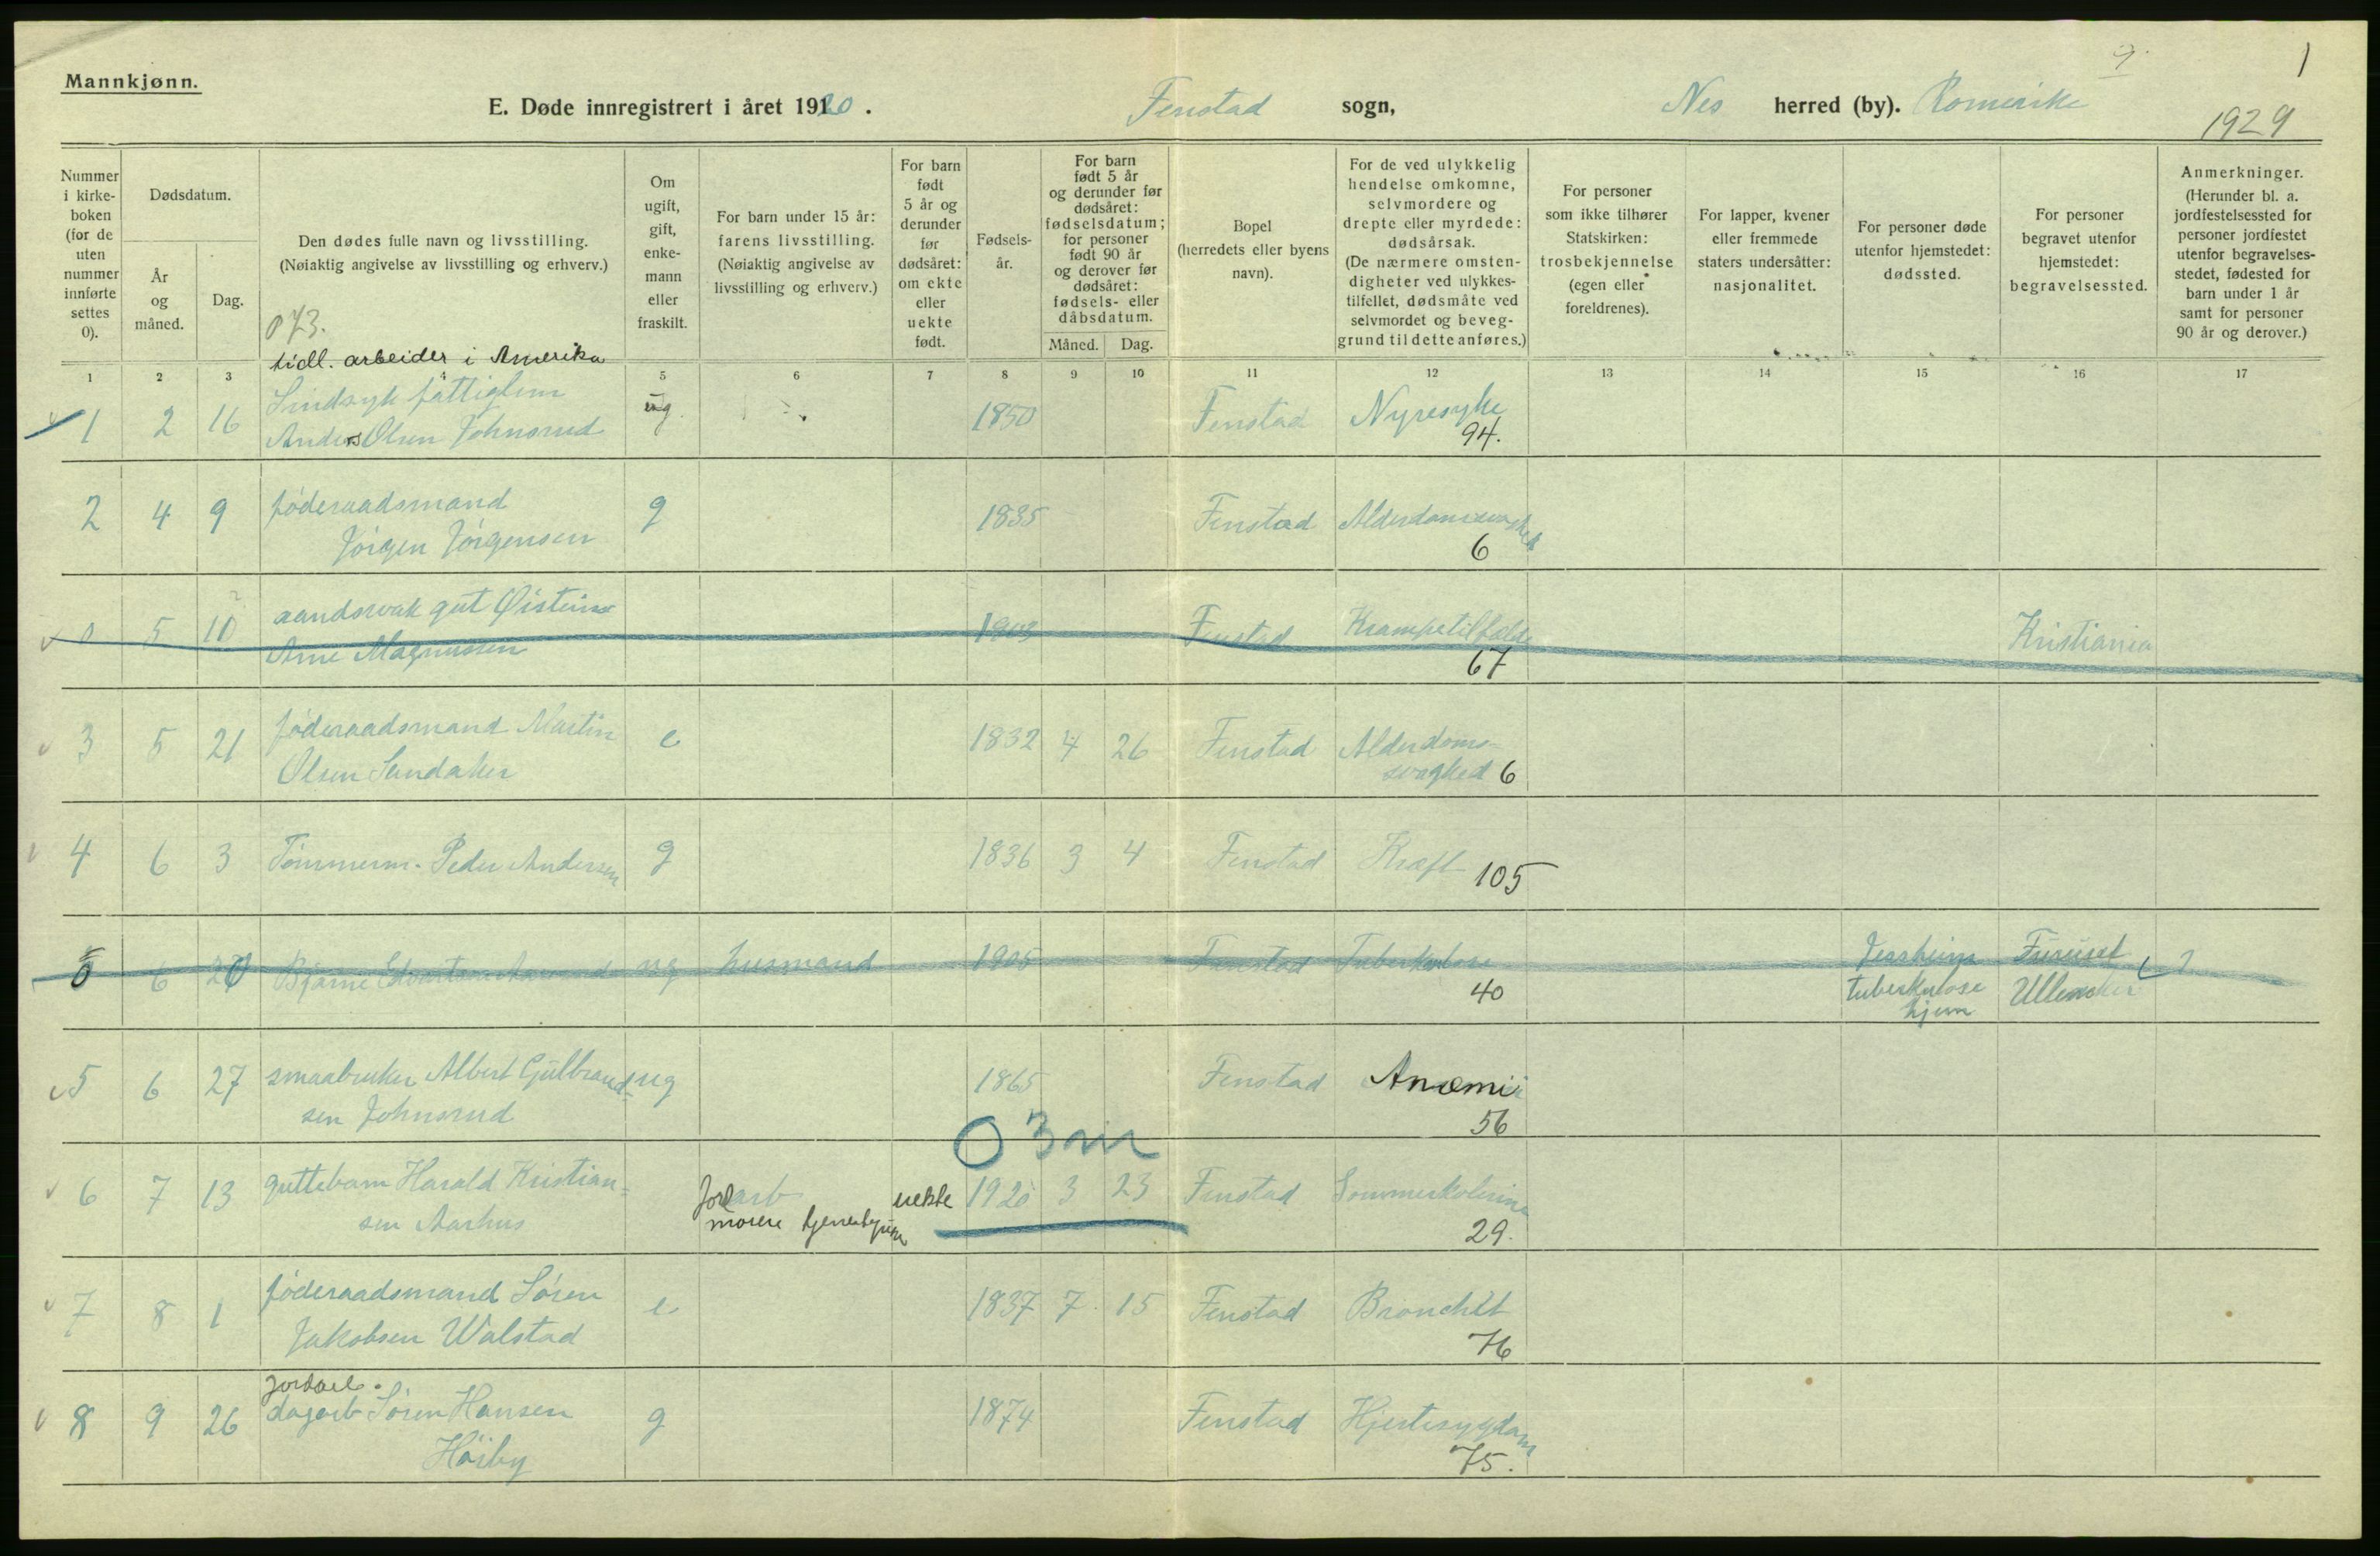 Mannkjønn.
9.
1
E. Døde innregistrert i året 1920.
Fenstad sogn,
Nes herred (by). Romerike
1929
Nummer i kirke-boken (for de uten nummer innførte settes 0).
Dødsdatum.
År og måned.
Dag.
Den dødes fulle navn og livsstilling.
(Nøiaktig angivelse av livsstilling og erhverv.)
073.
Om ugift, gift, enke-mann eller fraskilt.
For barn under 15 år: farens livsstilling.
(Nøiaktig angivelse av livsstilling og erhverv.)
For barn født 5 år og derunder før dødsåret: om ekte eller uekte født.
Fødsels-år.
For barn født 5 år og derunder før dødsåret: fødselsdatum; for personer født 90 år og derover før dødsåret: fødsels- eller dåbsdatum.
Måned.
Dag.
Bopel (herredets eller byens navn).
For de ved ulykkelig hendelse omkomne, selvmordere og drepte eller myrdede: dødsårsak.
(De nærmere omsten-digheter ved ulykkes-tilfellet, dødsmåte ved selvmordet og beveg-grund til dette anføres.)
For personer som ikke tilhører Statskirken: trosbekjennelse (egen eller foreldrenes).
For lapper, kvener eller fremmede staters undersåtter: nasjonalitet.
For personer døde utenfor hjemstedet: dødssted.
For personer begravet utenfor hjemstedet: begravelsessted.
Anmerkninger.
(Herunder bl. a. jordfestelsessted for personer jordfestet utenfor begravelses-stedet, fødested for barn under 1 år samt for personer 90 år og derover.)
1 2 3 4 5 6 7 8 9 10 11 12 13 14 15 16 17
tidl. arbeider i Amerika
Sindsyk fattiglem
1 2 16 Anders Olsen Johnsrud ug 1850 Fenstad Nyresyke
94.
2 4 9 føderaadsmand g 1835 Fenstad Alderdomssvaghed
Jörgen Jörgensen 6
0 5 10 aandsvak gut Øistein 1903 Fenstad Krampetilfælde Kristiania
Arne Magnussen 67
3 5 21 føderaadsmand Martin e 1832 4 26 Fenstad Alderdoms-
Olsen Sundaker svaghed 6
4 6 3 Tømmerm. Peder Andersen g 1836 3 4 Fenstad Kræft 105
0 6 20 Bjarne ug husmand 1905 Fenstad Tuberkulose Jessheim Furuset
40 tuberkulose Ullensaker
hjem
5 6 27 smaabruker Albert Gulbrand- ug 1865 Fenstad Anæmi
sen Johnsrud 56
0 3 m
6 7 13 guttebarn Harald Kristian- Jordarb uekte 1920 3 23 Fenstad Sommerkolerine
sen Aarhus morens tjenestepike 29.
7 8 1 føderaadsmand Sören e 1837 7 15 Fenstad Bronchit
Jakobsen Walstad 76
Jordarb.
8 9 26 dagarb Sören Hansen g 1874 Fenstad Hjertesygdom
Höiby 75.